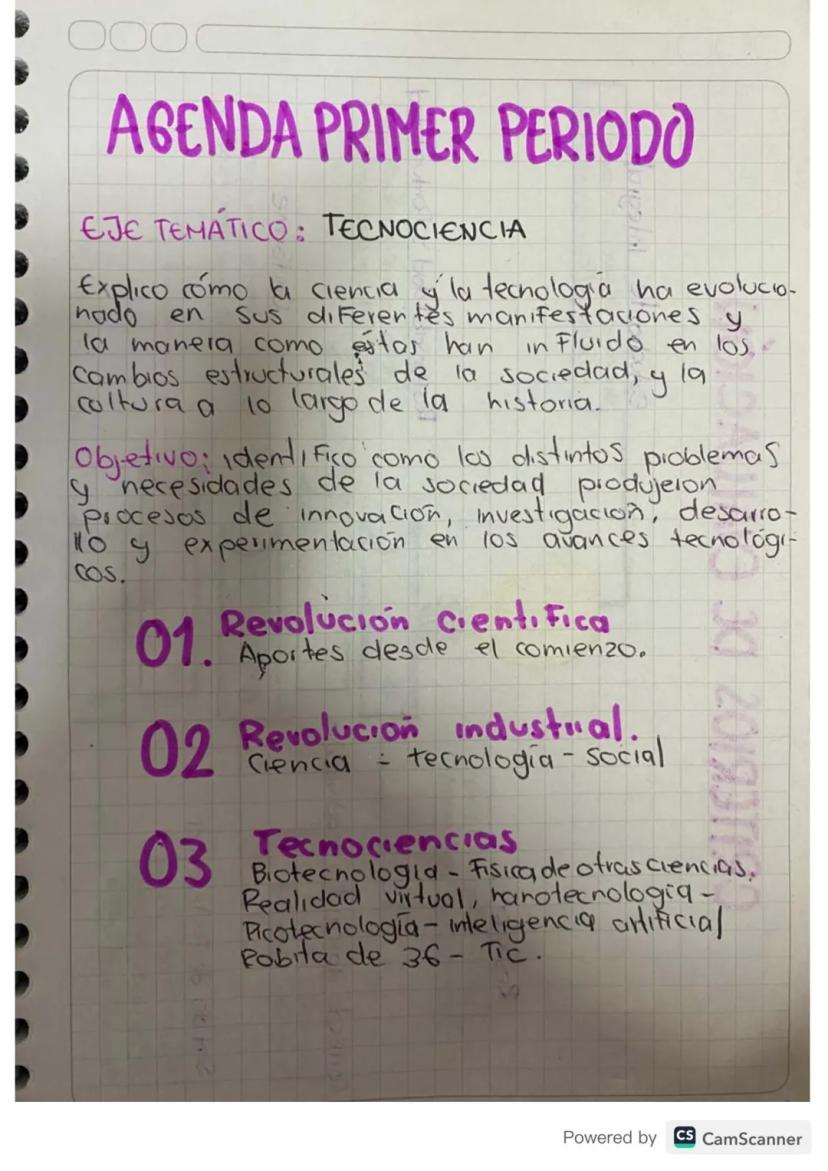 AGENDA PRIMER PERIODO
EJE TEMÁTICO: TECNOCIENCIA
Explico cómo la ciencia y la tecnología ha evolucio-
nado en sus diferentes manifestaciones y
la manera como éstas han influido en los
cambios estructurales de la sociedad, y la
cultura a lo largo de la historia.
Objetivo: identifico como los distintos problemas
y necesidades de la sociedad produjeron
procesos de innovación, investigación, desarro-
llo y experimentación en los avances tecnológi-
cos.
01. Revolución Científica
Aportes desde el comienzo.
02 Revolución industrial.
Ciencia - tecnología - social
03 Tecnociencias
Biotecnologia - Fisica de otras ciencias.
Realidad virtual, nanotecnologia -
Picotecnología - inteligencia artificial
Robita de 36 - Tic.
Powered by CS CamScanner